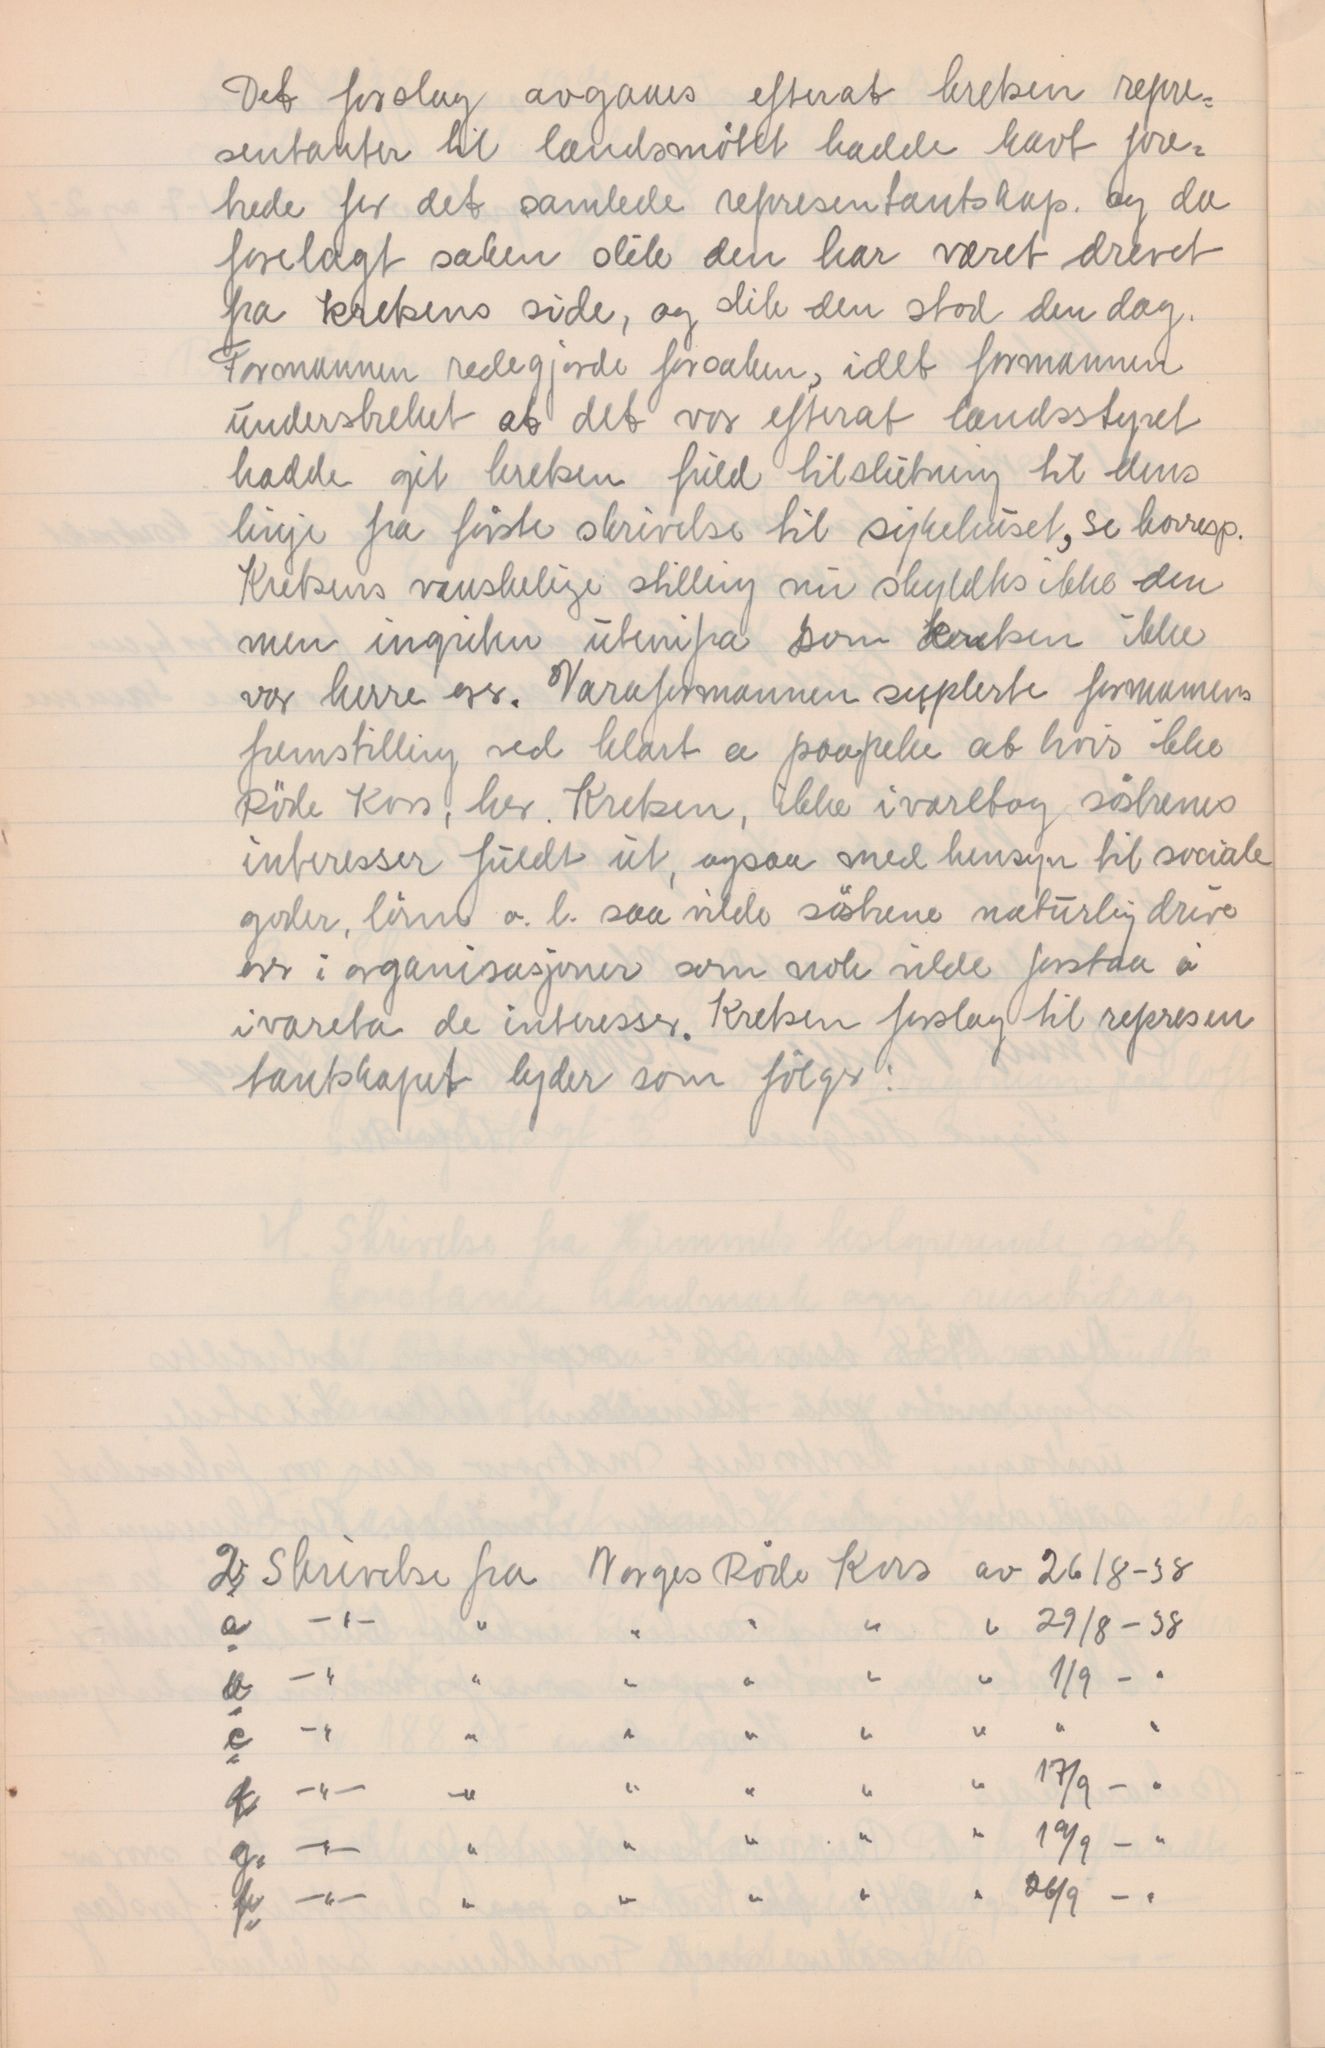 Det forslag avgaues efterat kretsen repre=
sentanter til landsmötet hadde havt fore=
trede for det samlede representantskap. og da
forelagt saken slik den har været drevet
fra kretsens side, og slik den stod den dag.
Formannen redegjorde forsaken, idet formannen
understreket at det var efterat landsstyret
hadde git kretsen fuld tilslutning til dens
linje fra förste skrivelse til sykehuset, se korresp.
Kretsens vanskelige stilling nu skyldtes ikke den
men ingriten utenifra som kretsen ikke
var herre over. Varaformannen suplerte formanens
fremstilling ved klart a paapeke at hvis ikke
Röde Kors, her. Kretsen, ikke ivaretog söstrenes
interesser fuldt ut, ogsaa med hensyn til sociale
goder, lönn o. l. saa vilde söstrene naturlig drive
over i organisasjoner som nok vilde forstaa å
ivareta de interesser. Kretsen forslag til represen
tantskapet lyder som fölger:
2; Skrivelse fra Norges Röde Kors av 26/8-38
a -"- " " " " " 29/8-38
b -" " " " " " 1/9 - "
c -" " " " " " " "
f -"- " " " " " 17/9 - "
g. -"- " " " " " 19/9 - "
h -"- " " " " " 26/9 - "